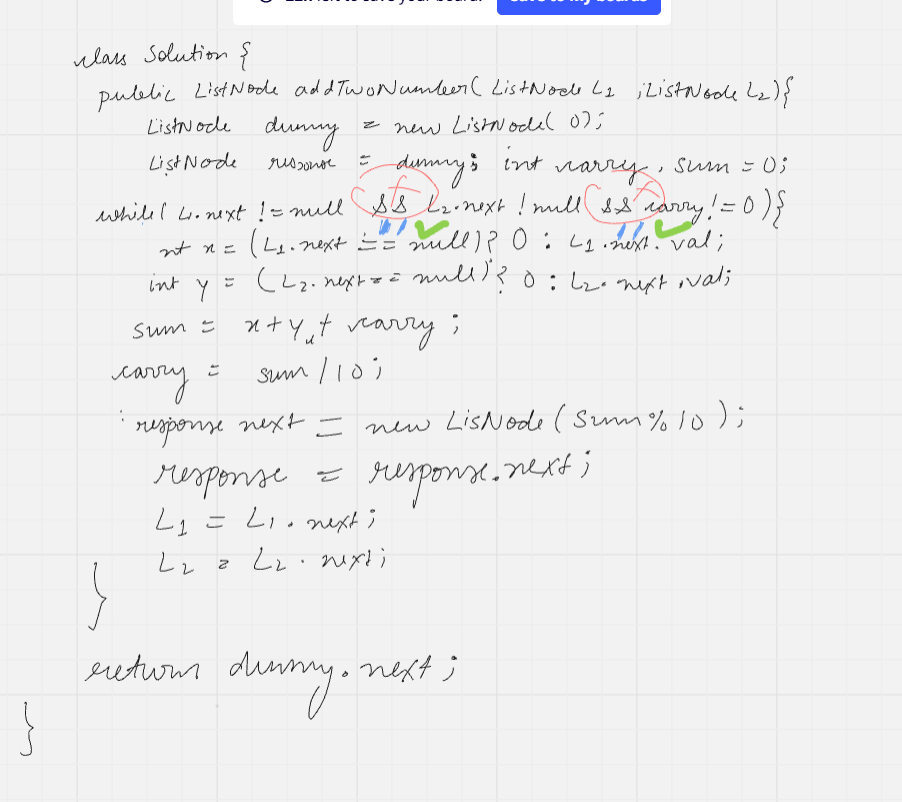 Save to my boards
class Solution {
public ListNode addTwoNumber( ListNode L1 , ListNode L2){
ListNode dummy = new ListNode( 0);
ListNode response = dummy; int carry, sum = 0;
while( L1.next != null && L2.next ! null && carry != 0 ){
int x = (L1.next == null)? 0 : L1.next.val;
int y = (L2.next == null)? 0 : L2.next.val;
sum = x+y+ carry ;
carry = sum / 10;
response next = new LisNode (Sum % 10 );
response = response.next;
L1 = L1.next;
L2 = L2.next;
}
return dummy.next;
}